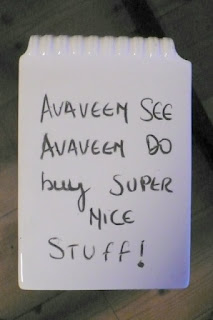 AVAVEEM SEE
AVAVEEM DO
buy SUPER
NICE
STUFF!